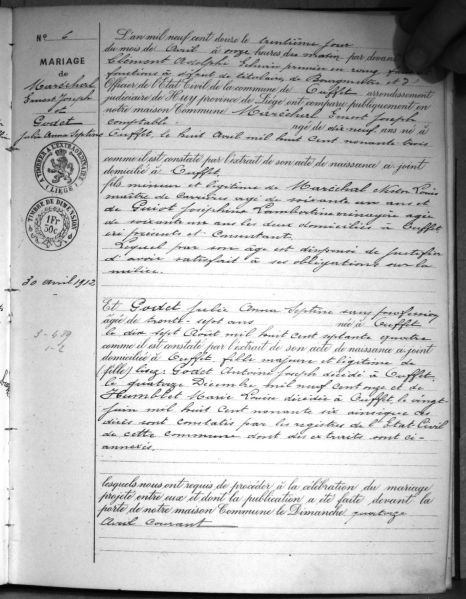 N° 6
MARIAGE
de
Maréchal
Ernest Joseph
et
Godet
Julie Anna Septine
TIMBRE A L'EXTRAORDINAIRE
LIEGE
TIMBRE DE DIMENSION
1F 50c
30 avril 1912
L'an mil neuf cent douze le trentième jour
du mois de Avril à onze heures du matin par devant
Clément Adolphe premier en rang
fonctions à défaut de titulaire de Bourgmestre
Officier de l'Etat Civil de la commune de Ouffet arrondissement
judiciaire de Huy province de Liège ont comparu publiquement en
notre maison Commune Maréchal Ernest Joseph
comptable âgé de dix neuf ans né à
Ouffet, le huit Avril mil huit cent nonante trois
comme il est constaté par l'extrait de son acte de naissance ci joint
domicilié à Ouffet
fils mineur et légitime de Maréchal Louis
maître de carrières âgé de soixante un ans et
de Guiot Joséphine Lambertine ménagère âgée
de soixante ans les deux domiciliés à Ouffet
ici présents et Consentant.
Lequel par son âge est dispensé de justifier
d'avoir satisfait à ses obligations sur la
milice.
Et Godet Julie Anna Septine sans profession
âgée de trente-sept ans née à Ouffet
le dix sept Août mil huit cent septante quatre
comme il est constaté par l'extrait de son acte de naissance ci joint
domicilié à Ouffet, fille majeure et légitime de
(fille) Godet Antoine Joseph décédé à Ouffet,
le quatorze Décembre mil neuf cent onze et de
Humblet Marie Louise décédée à Ouffet le vingt
juin mil huit cent nonante six ainsi que ces
décès sont constatés par les registres de l'Etat Civil
de cette commune dont des extraits sont ci-
annexés.
lesquels nous ont requis de procéder à la célébration du mariage
projeté entre eux et dont la publication a été faite devant la
porte de notre maison Commune le Dimanche quatorze
Avril Courant